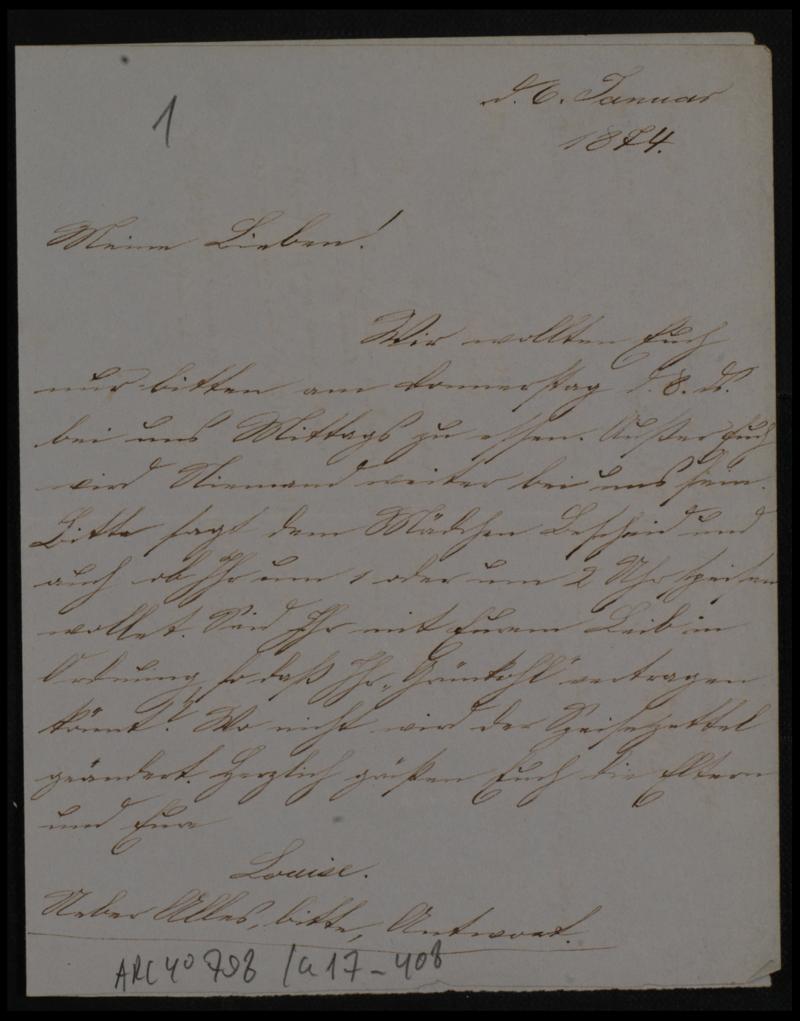 1
d. 6. Januar
1874.
Meine Lieben!
Wir wollten Euch
nur bitten am Donnerstag d. 8. ds.
bei uns Mittags zu essen. Außer Euch
wird Niemand weiter bei uns sein.
Bitte sagt dem Mädchen Bescheid und
auch ob Ihr um 1 oder um 2 Uhr speisen
wollet. Seid Ihr mit Eurem Leib in
Ordnung, so daß Ihr „Grünkohl“ vertragen
könnt? Wo nicht wird der Speisezettel
geändert. Herzlich grüßen Euch die Eltern
und Eure
Louise.
Ueber Alles, bitte, Antwort.
ARC 4o 798 / a 17 - 408